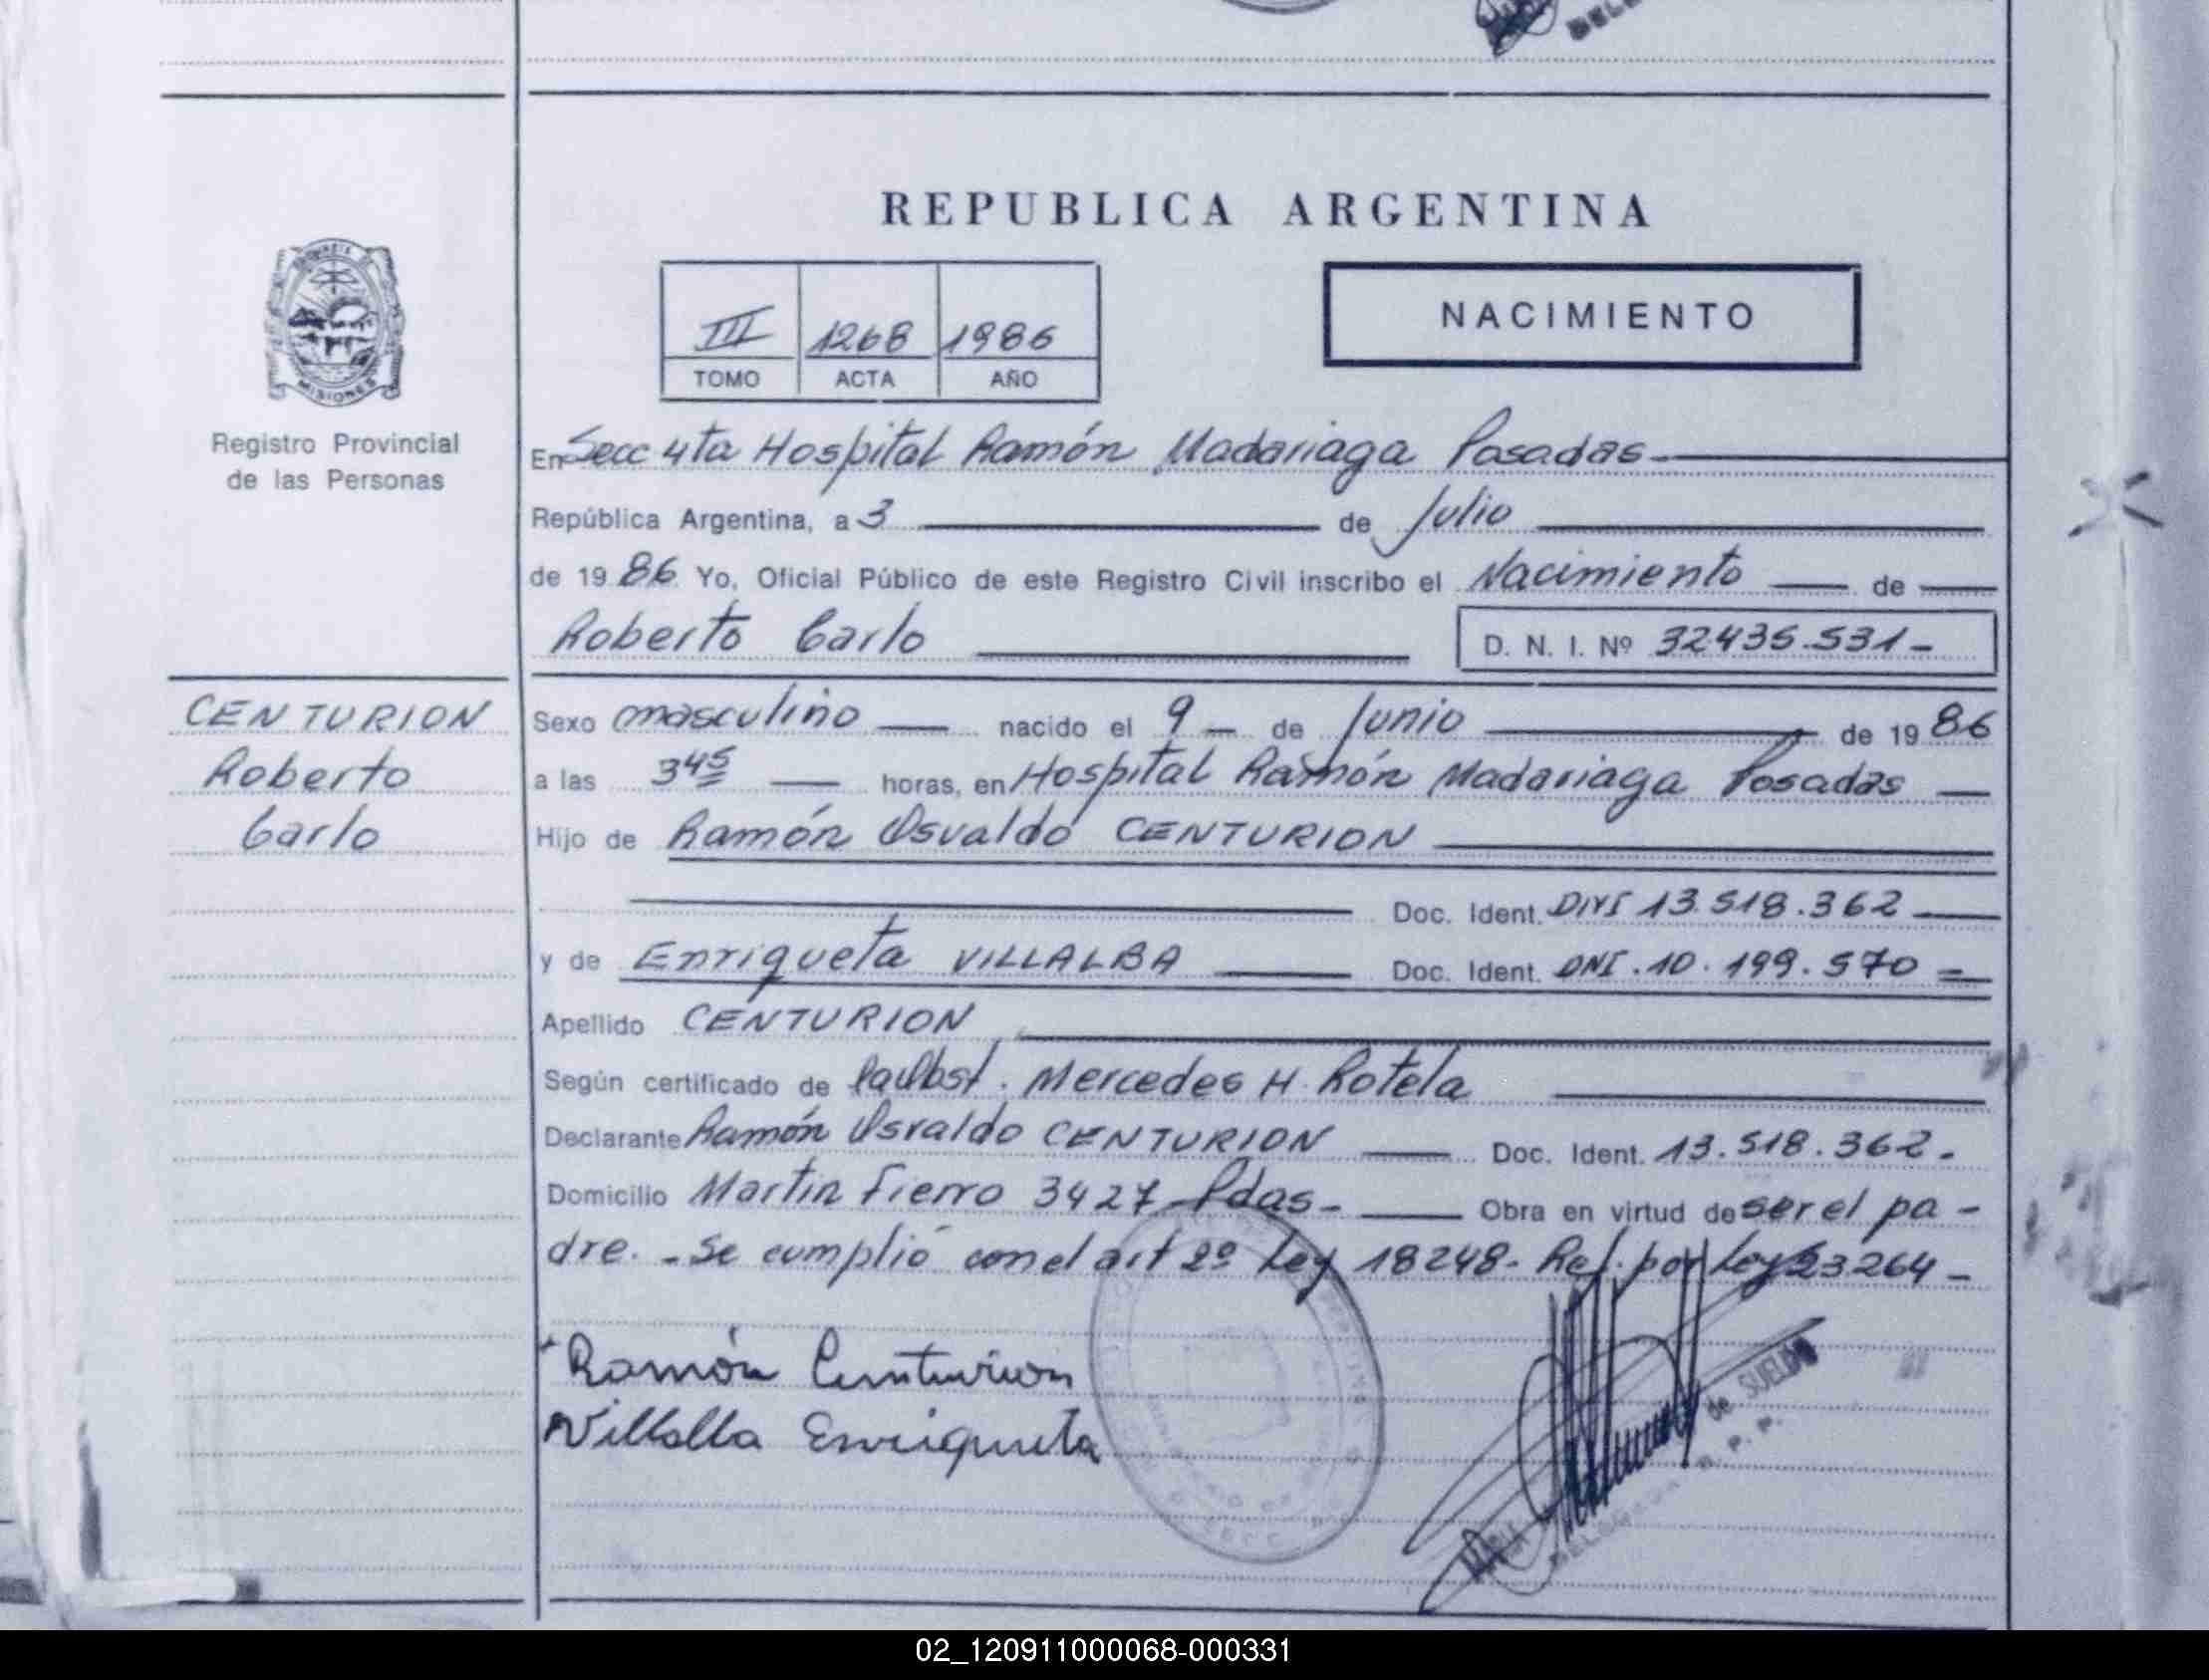 REPUBLICA ARGENTINA
III 1268 1986
TOMO ACTA AÑO
NACIMIENTO
MISIONES
Registro Provincial
de las Personas
En Secc 4ta Hospital Ramón Madariaga Posadas
República Argentina, a 3 de Julio
de 1986 Yo, Oficial Público de este Registro Civil inscribo el Nacimiento de
Roberto Carlo D. N. I. Nº 32.435.531-
CENTURION
Roberto
Carlo
Sexo masculino nacido el 9 de Junio de 1986
a las 3 45 horas, en Hospital Ramón Madariaga Posadas
Hijo de Ramón Osvaldo CENTURION
Doc. Ident. DNI 13.518.362
y de Enriqueta VILLALBA Doc. Ident. DNI. 10.199.570
Apellido CENTURION
Según certificado de Mercedes H. Rotela
Declarante Ramón Osvaldo CENTURION Doc. Ident. 13.518.362.
Domicilio Martin Fierro 3427 - Pdas - Obra en virtud de ser el pa-
dre. - Se cumplió con el art 2º Ley 18248 - Ref. por Ley 23264 -
Ramón Centurion
Villalba Enriqueta
de SUELDO
02_120911000068-000331